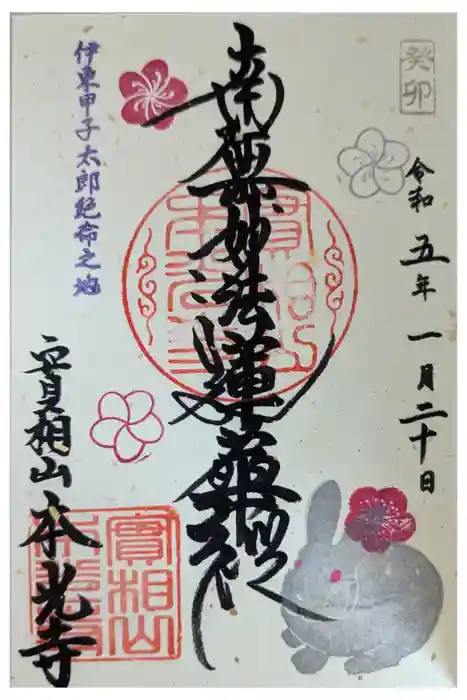 癸卯
令和五年一月二十日
南無妙法蓮華経
伊東甲子太郎絶命之地
實相山本光寺
實相山
本光寺
實相山
本光寺